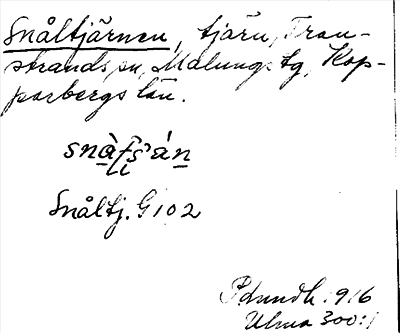 Snåltjärnen, tjärn, Tran-
strands sn, Malungs tg, Kop-
parbergs län.
Snåltj. G 102
P. Lundh. 1916
Ulma 300:1